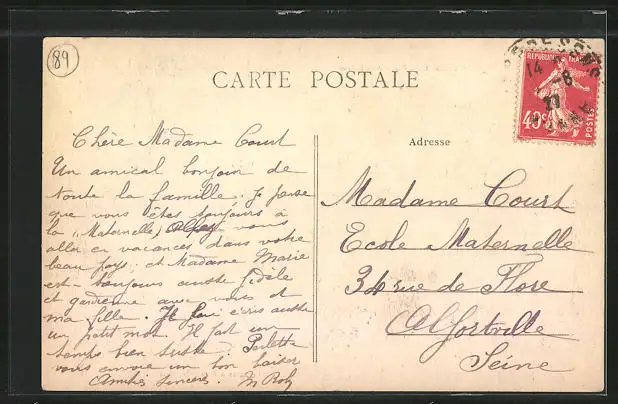 89
CARTE POSTALE
RÉPUBLIQUE FRA
14
-8
27
40c
POSTES
Chère Madame Court
Un amical bonjour de
toute la famille. Je pense
que vous êtes toujours à
la "Maternelle" vous
allez en vacances dans votre
beau pays, et Madame Marie
est toujours aussi fidèle
et gardienne avec vous et
ma fille. Il aussi
un petit mot. Il fait un
temps bien triste. Paulette
vous envoie un bon baiser
Amitiés sincères. M
Adresse
Madame Court
Ecole Maternelle
34 rue de Flore
Alfortville
Seine